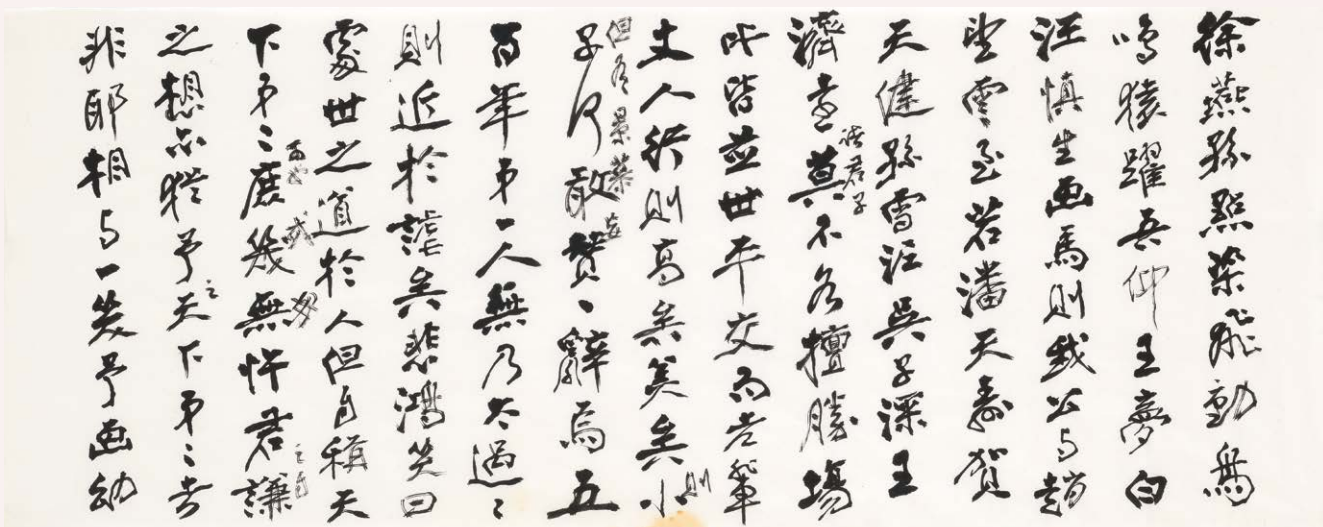 徐燕孫點染飛動鳥
鳴猿躍吾仰王夢白
汪慎生画馬則我公与趙
望雲至若潘天壽賀
天健孫雪泥吳子深王
濟遠諸君子莫不各擅勝場
此皆並世平交而老輩
丈人行則高矣美矣小則
但有景
子何敢贊一辭焉五
百年第一人無乃太過〻
則近於謔矣悲鴻笑曰
處世之道於人但自稱天
下第二庶幾無忤君謙之自
之想亦猶予之天下第二者
非耶相与一笑予画幼